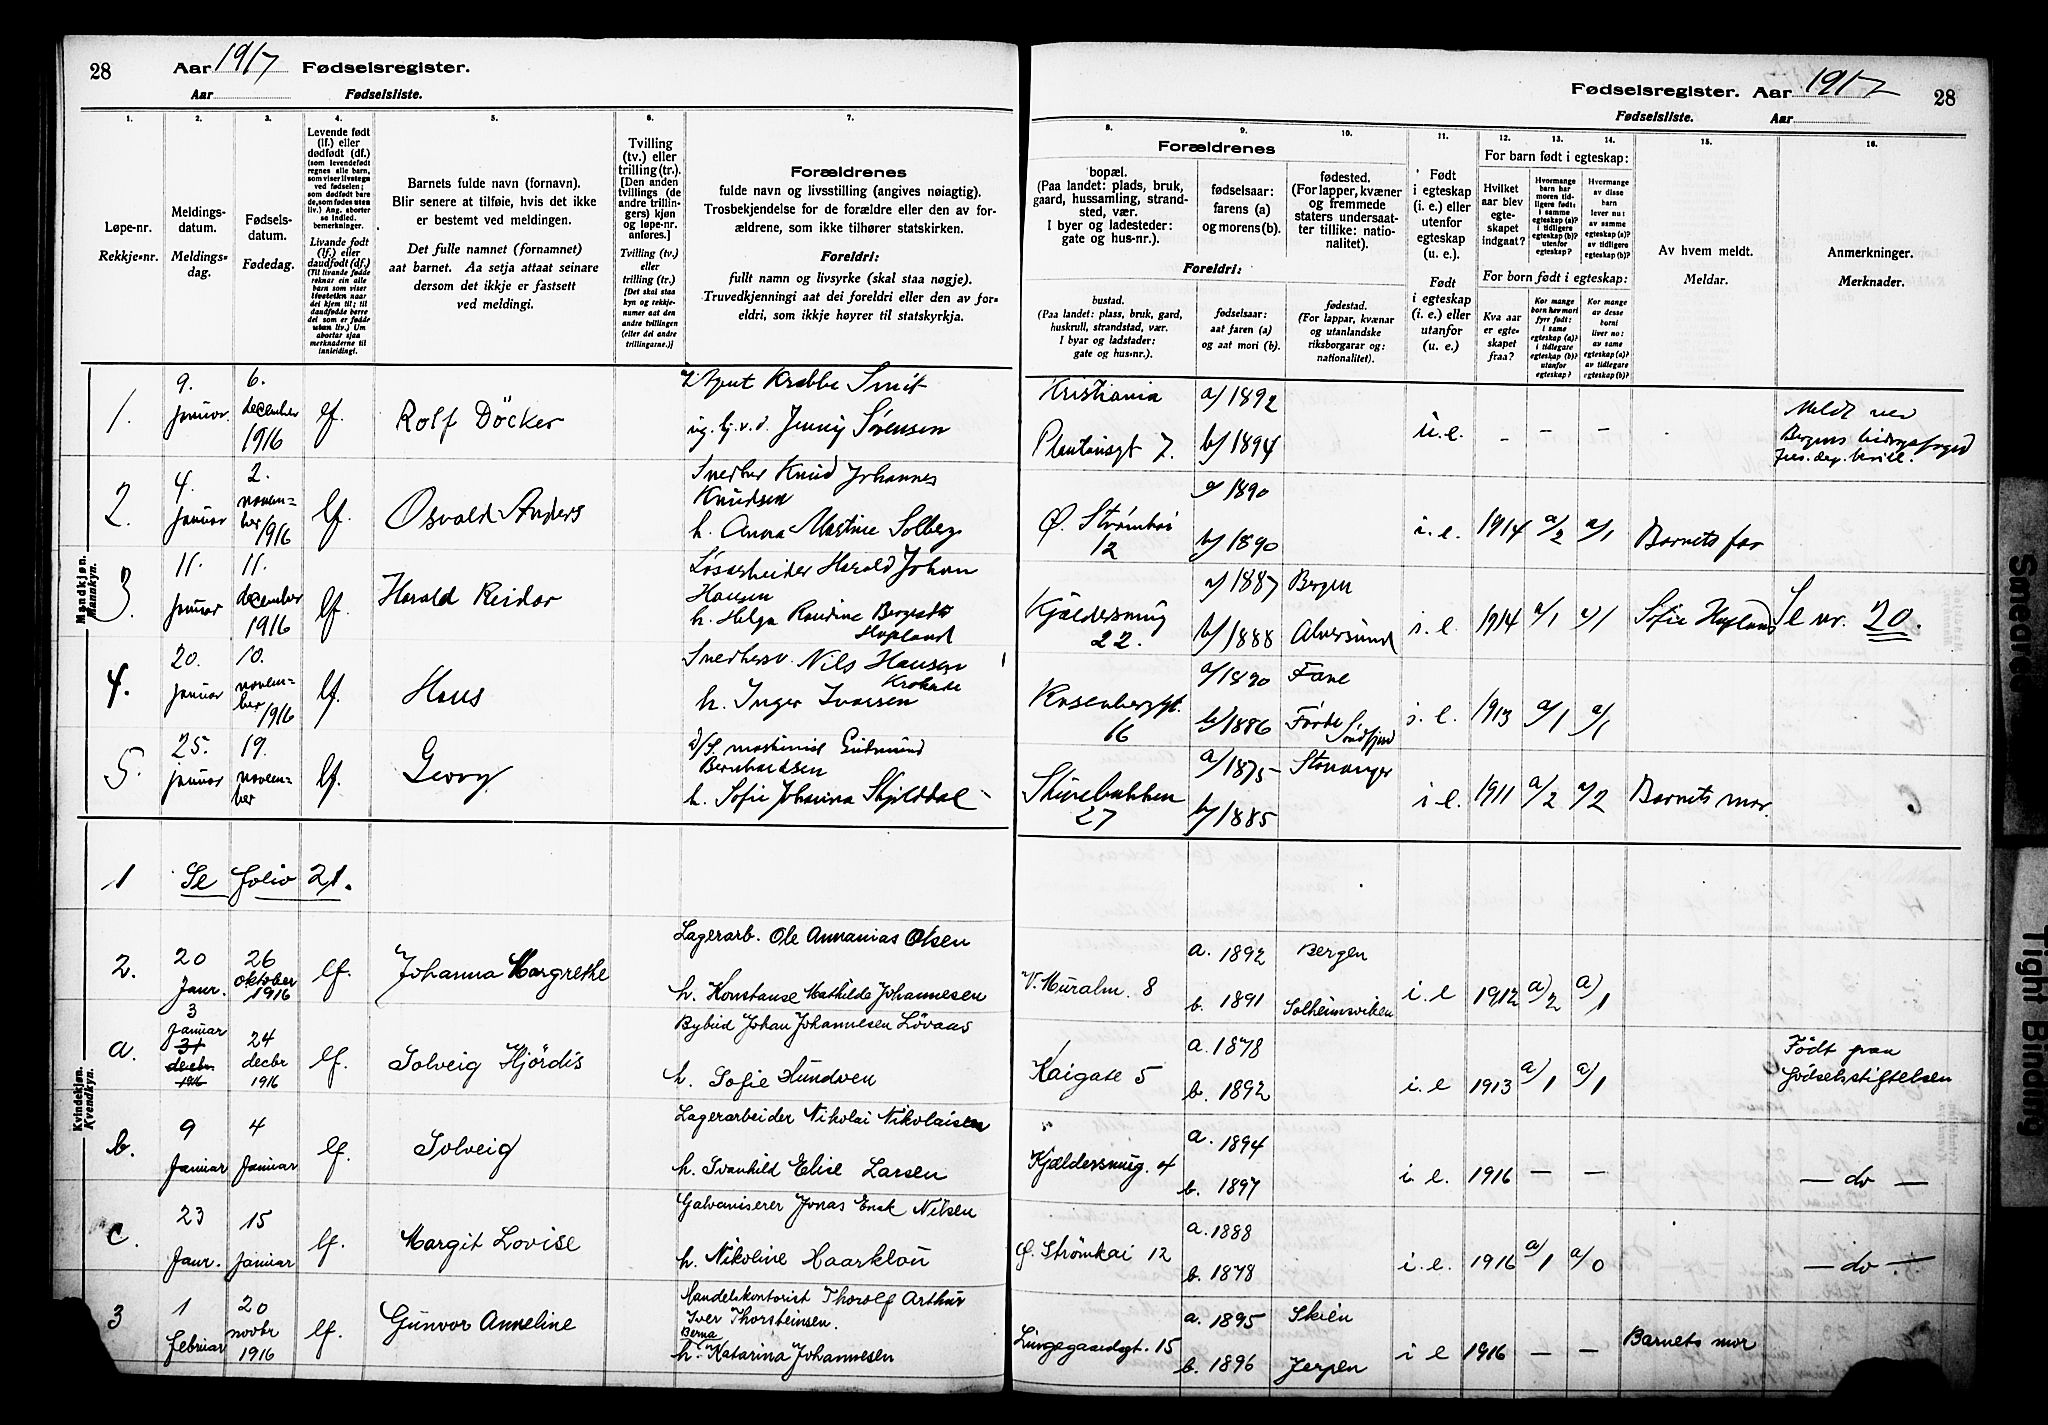 28
Aar 1917 Fødselsregister.
Aar Fødselsliste.
Fødselsregister. Aar 1917
28
Fødselsliste. Aar
1. 2. 3. 4. 5. 6. 7.
Løpe-nr.
Rekkje-nr.
Meldings-
datum.
Meldings-
dag.
Fødsels-
datum.
Fødedag.
Levende født
(lf.) eller
dødfødt (df.)
(som levendefødt
regnes alle barn,
som viser livstegn
ved fødselen;
som dødfødt bare
de, som fødes uten
liv.) Ang. aborter
se indled.
bemerkninger.
Livande født
(lf.) eller
daudfødt (df.)
(Til livande fødde
reknar ein alle
barn som viser
livsteikn naar
dei kjem til; til
daudfødde berre
dei som er fødde
utan liv.) Um
abortar sjaa
merknaderne til
innleidingi.
Barnets fulde navn (fornavn).
Blir senere at tilføie, hvis det ikke
er bestemt ved meldingen.
Det fulle namnet (fornamnet)
aat barnet. Aa setja attaat seinare
dersom det ikkje er fastsett
ved meldingi.
Tvilling
(tv.) eller
trilling (tr.)
[Den anden
tvillings (de
andre trillin-
gers) kjøn
og løpe-nr.
anføres.]
Tvilling (tv.)
eller
trilling (tr.)
[Det skal staa
kyn og rekkje-
numer aat den
andre tvillingen
(eller dei andre
trillingarne.)]
Forældrenes
fulde navn og livsstilling (angives nøiagtig).
Trosbekjendelse for de forældre eller den av for-
ældrene, som ikke tilhører statskirken.
Foreldri:
fullt namn og livsyrke (skal staa nøgje).
Truvedkjenningi aat dei foreldri eller den av for-
eldri, som ikkje høyrer til statskyrkja.
8. 9. 10. 11. 12. 13. 14. 15. 16.
Forældrenes
bopæl.
(Paa landet: plads, bruk,
gaard, hussamling, strand-
sted, vær.
I byer og ladesteder:
gate og hus-nr.).
fødselsaar:
farens (a)
og morens (b).
fødested.
(For lapper, kvæner
og fremmede
staters undersaat-
ter tillike: natio-
nalitet).
Foreldri:
bustad.
(Paa landet: plass, bruk, gard,
huskrull, strandstad, vær.
I byar og ladstader:
gate og hus-nr.).
fødselsaar:
aat faren (a)
og aat mori (b).
fødestad.
(For lappar, kvænar
og utanlandske
riksborgarar og:
nationalitet).
Født
i egteskap
(i. e.) eller
utenfor
egteskap
(u. e.).
Født
i egteskap
(i. e.) eller
utanfor
(u. e.)
For barn født i egteskap:
Hvilket
aar blev
egte-
skapet
indgaat?
Hvormange
barn har
moren tid-
ligere født:
i samme
egteskap (a)?
i tidligere
egteskap (b)?
utenfor
egteskap?
Hvormange
av disse
barn
lever nu:
av samme
egteskap (a)?
av tidligere
egteskap (b)?
For born født i egteskap:
Kva aar
er egte-
skapet
fraa?
Kor mange
born hev mori
fyrr født:
i same
egteskap (a)?
i tidlegare
egteskap (b)?
utanfor
egteskap?
Kor mange
av desse
borni
liver no:
av same
egteskap (a)?
av tidlegare
egteskap (b)?
Av hvem meldt.
Meldar.
Anmerkninger.
Merknader.
Mandkjøn.
Mannkyn.
1. 9. januar. 6. december 1916 lf. Rolf Döcker
Krabbe Smit
ug. Jenny Sørensen
Kristiania
7. a/1892
b/1894 u.e. - - -
Meldt ved
Bergens
2. 4. januar 2. november 1916 lf. Osvald Anders
Snedker Knud Johannes
Knudsen
h. Anna Martine Solberg
Ø. Strømkai
12 a/1890
b/1890 i. e. 1914 a/2 a/1 Barnets far
3. 11. januar 11. december 1916 lf. Harald Reidar
Løsarbeider Harald Johan
Hansen
h. Helga
Hopland
Kjældersmug
22. a/1887 Bergen
b/1888 Alversund i. e. 1914 a/1 a/1 Sofie Hopland Se nr. 20.
4. 20. januar 10. november 1916 lf. Hans
Snedkersv. Nils Hansen
h. Inger Ivarsen
Rosenberggt.
16 a/1890 Fane
b/1886 Førde Søndfjord i. e. 1913 a/1 a/1
5. 25. januar 19. november lf. Georg
D/S. maskinist Gudmund
Bernhardsen
h. Sofie Johanna Skjolddal
Skivebakken
27 a/1875 Stavanger
b/1885 i e. 1911 a/2 a/2 Barnets mor.
Kvindekjøn.
Kvendkyn.
1 Se folio 21.
2. 20 Janr. 26 oktober 1916 lf. Johanna Margrethe
Lagerarb. Ole Annanias Olsen
h. Konstanse Mathilde Johannesen
V. Muralm. 8 a. 1892 Bergen
b. 1891 Solheimsviken i. e 1912 a/2 a/1
a. 3 Januar 31 decbr. 1916 24 decbr 1916 lf. Solveig Hjördis
Bybud Johan Johannesen Løvaas
h. Sofie Hundven
Kaigate 5 a. 1878
b. 1892 i. e 1913 a/1 a/1
Født paa
fødselsstiftelsen
b. 9 Januar 4 Januar lf. Solveig
Lagerarbeider Nikolai Nikolaisen
h. Svanhild Elise Larsen
Kjældersmug. 4 a. 1894
b. 1897 i. e. 1916 — — — do —
c. 23 Janr. 15 Januar lf. Margit Lovise
Galvaniserer Jonas Enok Nilsen
h. Nikoline Haarklau
Ø. Strømkai 12 a. 1888
b. 1878 i. e. 1916 a/1 a/0 — do —
3 1 Februar 20 novbr 1916 lf. Gunvor Anneline
Handelskontorist Thorolf Arthur
Iver Thorsteinsen.
Berna
h. Katarina Johannesen
Lungegaardsgt. 15 a. 1895 Skien
b. 1896 i e 1916 — — Barnets mor
Smearet
Tight Binding